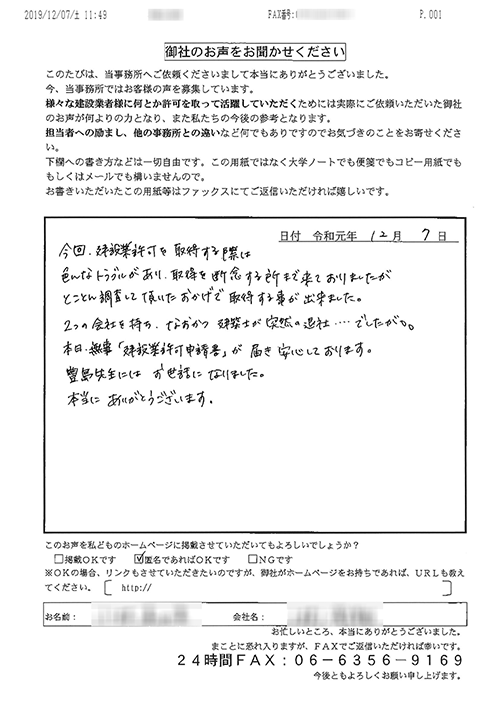 2019/12/07/土 11:49 FAX番号: P.001
御社のお声をお聞かせください
このたびは、当事務所へご依頼くださいまして本当にありがとうございました。
今、当事務所ではお客様の声を募集しています。
様々な建設業者様に何とか許可を取って活躍していただくためには実際にご依頼いただいた御社
のお声が何よりの力となり、また私たちの今後の参考となります。
担当者への励まし、他の事務所との違いなど何でもありですのでお気づきのことをお寄せくださ
い。
下欄への書き方などは一切自由です。この用紙ではなく大学ノートでも便箋でもコピー用紙でも
もしくはメールでも構いませんので。
お書きいただいたこの用紙等はファックスにてご返信いただければ嬉しいです。
日付 令和元年 12月 7日
今回、建設業許可を取得する際は
色んなトラブルがあり、取得を断念する所まで来ておりましたが
とことん調査して頂いたおかげで取得する事が出来ました。
2つの会社を持ち、なおかつ建築士が突然の退社‥‥でしたが。
本日、無事「建設業許可申請書」が届き安心しております。
豊島先生には お世話になりました。
本当に ありがとうございます。
このお声を私どものホームページに掲載させていただいてもよろしいでしょうか？
□掲載OKです ☑匿名であればOKです □NGです
※OKの場合、リンクもさせていただきたいのですが、御社がホームページをお持ちであれば、URLも教え
てください。 [ http:// ]
お名前： 会社名：
お忙しいところ、本当にありがとうございました。
まことに恐れ入りますが、FAXでご返信いただければ幸いです。
24時間FAX：06-6356-9169
今後ともよろしくお願い申し上げます。